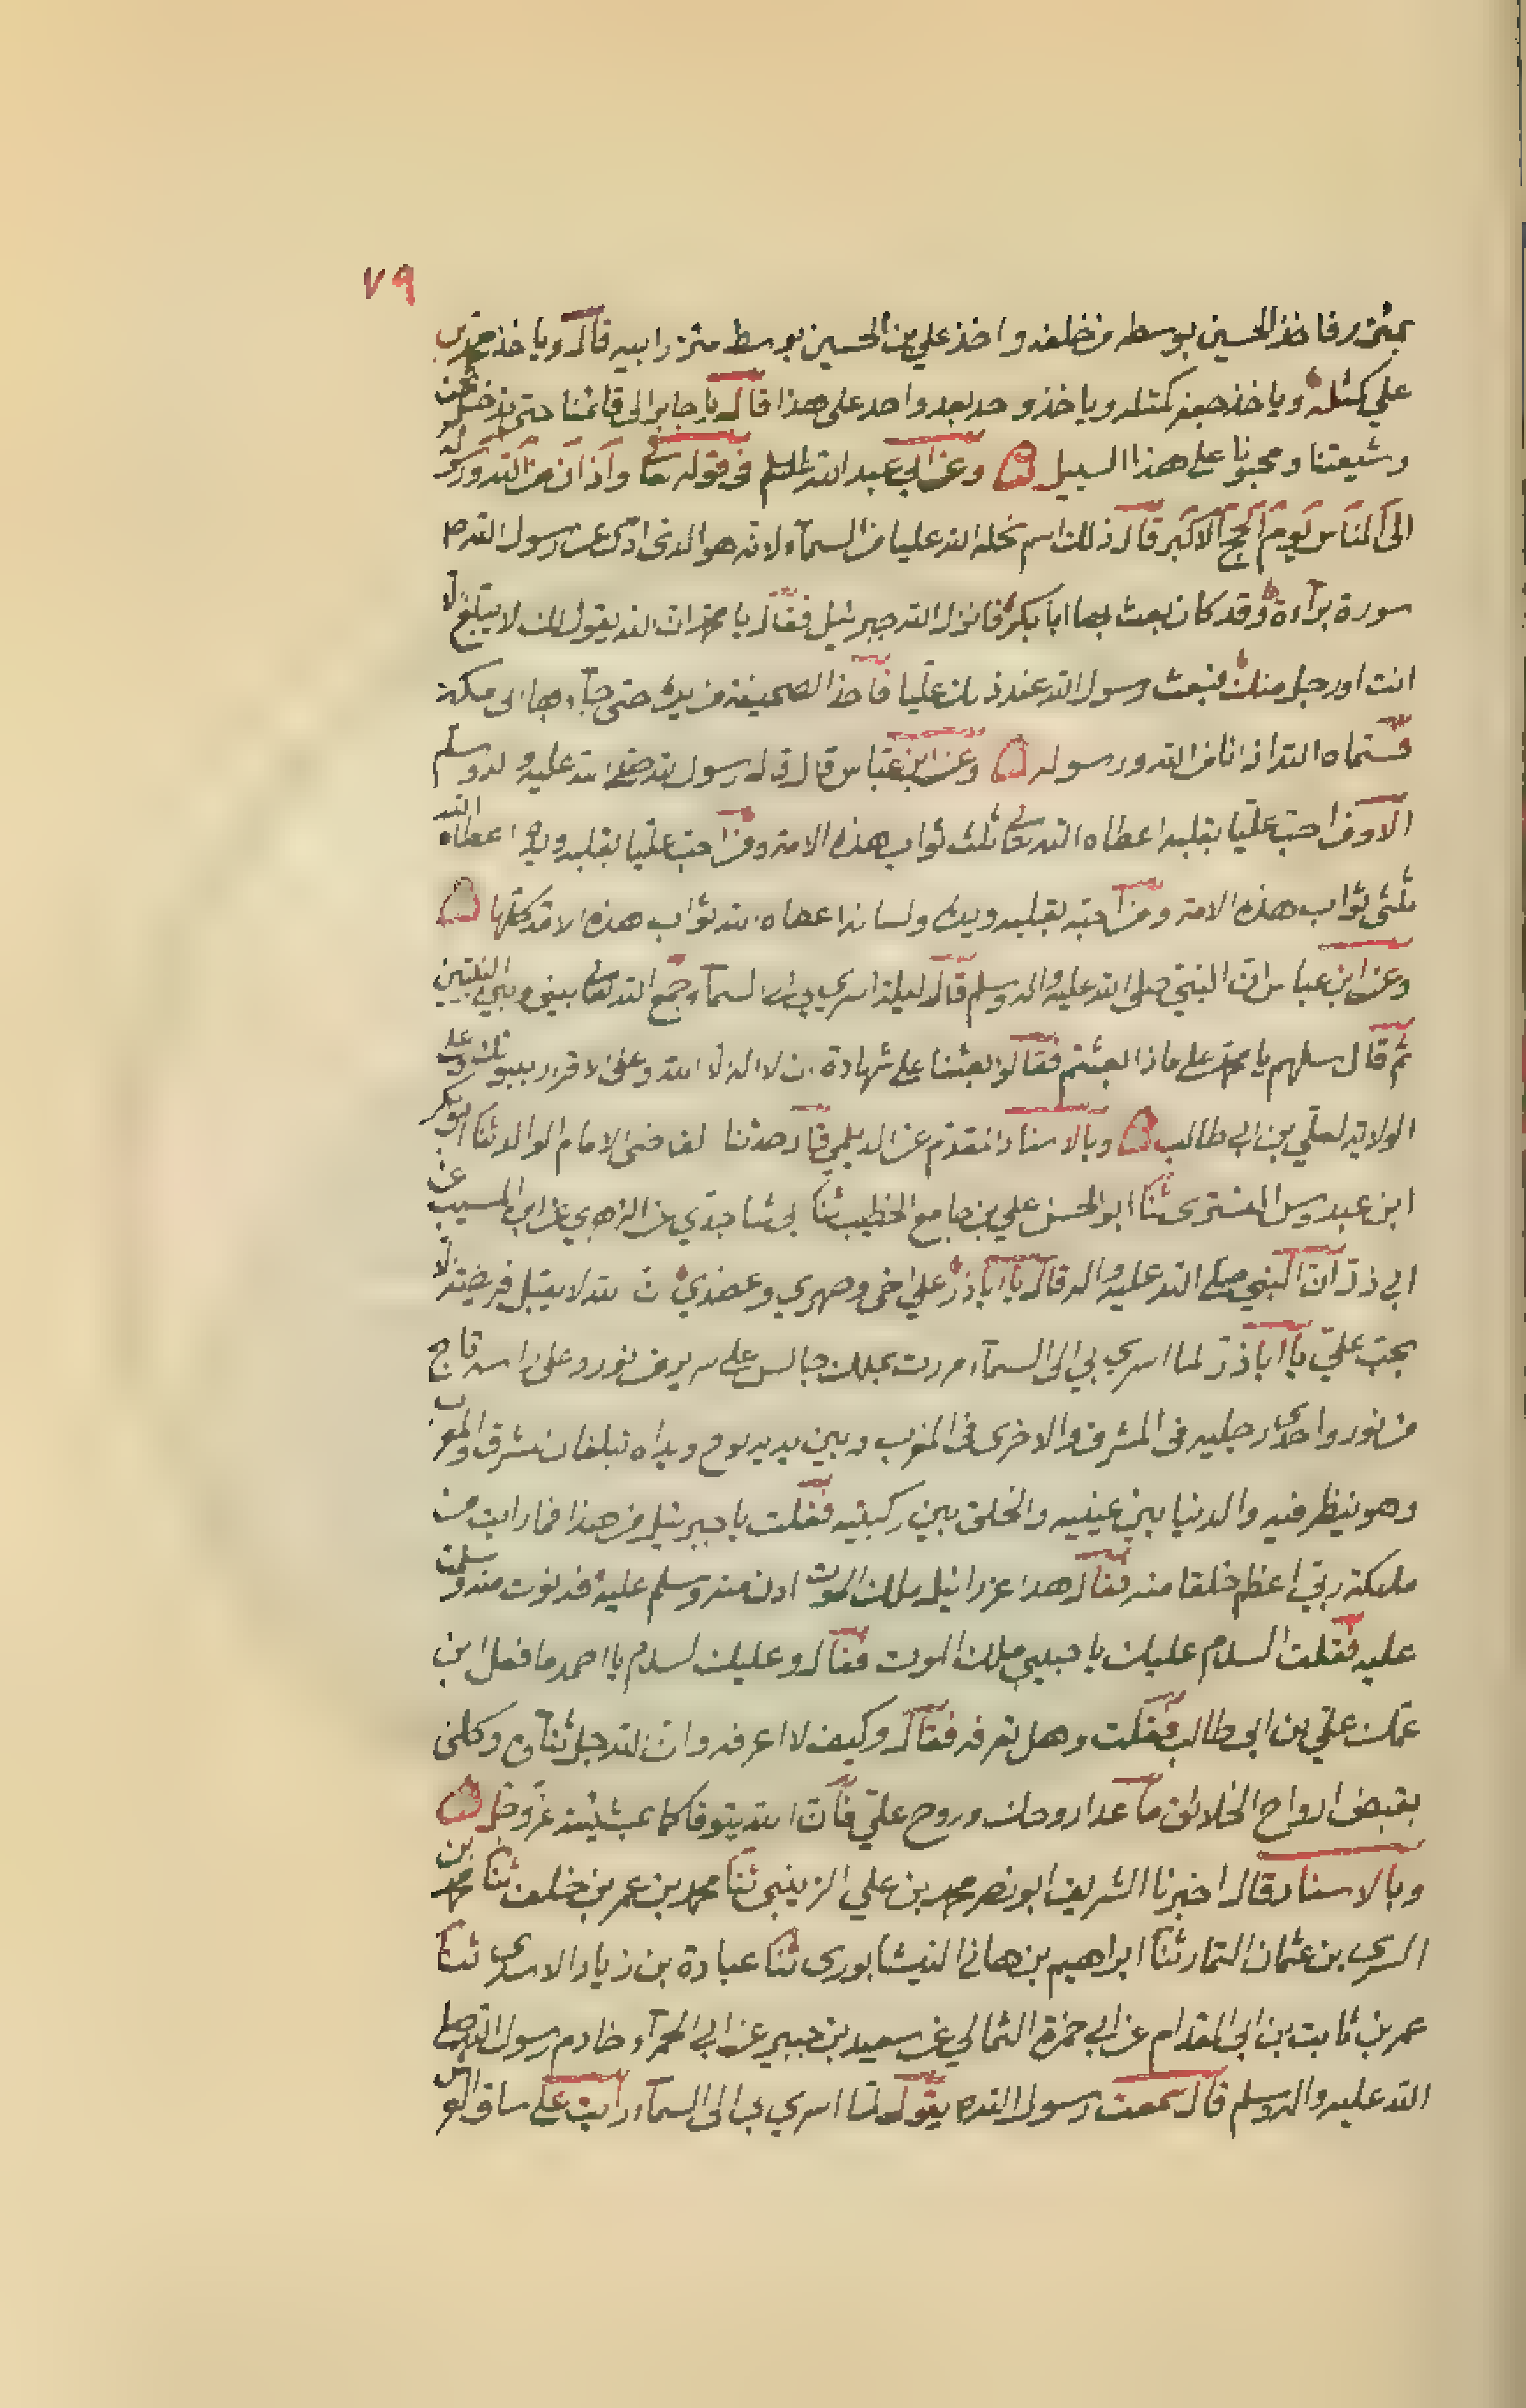 ٧٩
بمئزر فاخذ الحسين بوسطه من خلفه واخذ علي بن الحسين بوسط مئزر ابيه قال وياخذ محمد بن
علي كمثله وياخذ جعفر كمثله وياخذ وحد بعد واحد على هذا قال يا جابر الى قائمنا حتى ندخل نحن
وشيعتنا ومحبونا على هذا السبيل وعن ابي عبد الله في قوله تعا واذان من الله ورسوله
الى الناس يوم الحج الاكبر قال ذلك اسم نحله الله عليا من السمآء لانه هو الذى ادى عن رسول الله ص
سورة براءة وقد كان بعث بها ابا بكر فانزل الله جبرئيل فقال يا محمد ان الله يقول لك لا يبلغ الا
انت او رجل منك فبعث رسول الله عند ذلك عليا فاخذ الصحيفة من يده حتى جآء بها الى مكة
فسماه الله اذانا من الله ورسوله وعن ابن عباس قال قال رسول الله صلى الله عليه وآله وسلم
الا ومن احب عليا بقلبه اعطاه الله تعالى ثلث ثواب هذه الامة ومن احب عليا بقلبه ويده اعطاه الله
ثلثى ثواب هذه الامة ومن احبه بقلبه ويده ولسانه اعطاه الله ثواب هذه الامة كلها
وعن ابن عباس ان النبي صلى الله عليه واله وسلم قال ليلة اسري بي الى السمآء جمع الله تعالى بيني وبين النبيين
ثم قال سلهم يا محمد على ماذا بعثتم فقالوا بعثنا على شهادة ان لا اله الا الله وعلى الاقرار بنبوتك وعلى
الولاية لعلي بن ابي طالب وبالاسناد المقدم عن الديلمي قال حدثنا القاضى الامام الوالد ثنا ابو بكر
ابن عبدوس التسترى ثنا ابو الحسن علي بن جامع الخطيب ثنا ابي ثنا جدي عن الزهري عن ابن المسيب عن
ابي ذر ان النبي صلى الله عليه واله قال يا ابا ذر علي اخى وصهري وعضدي ان الله لا يقبل فريضة الا
بحب علي يا ابا ذر لما اسري بي الى السمآء مررت بملك جالس على سرير من نور وعلى راسه تاج
من نور واحدى رجليه فى المشرق والاخرى فى المغرب وبين يديه لوح ويداه تبلغان المشرق والمغرب
وهو ينظر فيه والدنيا بين عينيه والخلق بين ركبتيه فقلت يا جبرئيل من هذا فما رايت من
ملئكة ربى اعظم خلقا منه فقال هذا عزرائيل ملك الموت ادن منه وسلم عليه فدنوت منه وسلمت
عليه فقلت السلام عليك يا حبيبي ملك الموت فقال وعليك السلام يا احمد ما فعل ابن
عمك علي بن ابي طالب فقلت وهل تعرفه فقال وكيف لا اعرفه وان الله جل ثناؤه وكلنى
بقبض ارواح الخلائق ما عدا روحك وروح علي فان الله يتوفاكما بمشيئته عز وجل
وبالاسناد قال اخبرنا الشريف ابو نصر محمد بن علي الزينبى ثنا محمد بن عمر بن خلف ثنا محمد بن
السري بن عثمان التمار ثنا ابراهيم بن هاني النيشابورى ثنا عبادة بن زياد الاسدي ثنا
عمر بن ثابت بن ابى المقدام عن ابي حمزة الثمالي عن سعيد بن جبير عن ابي الحمرآء خادم رسول الله صلى
الله عليه واله وسلم قال سمعت رسول الله ص يقول لما اسري بى الى السمآء رايت على ساق العرش